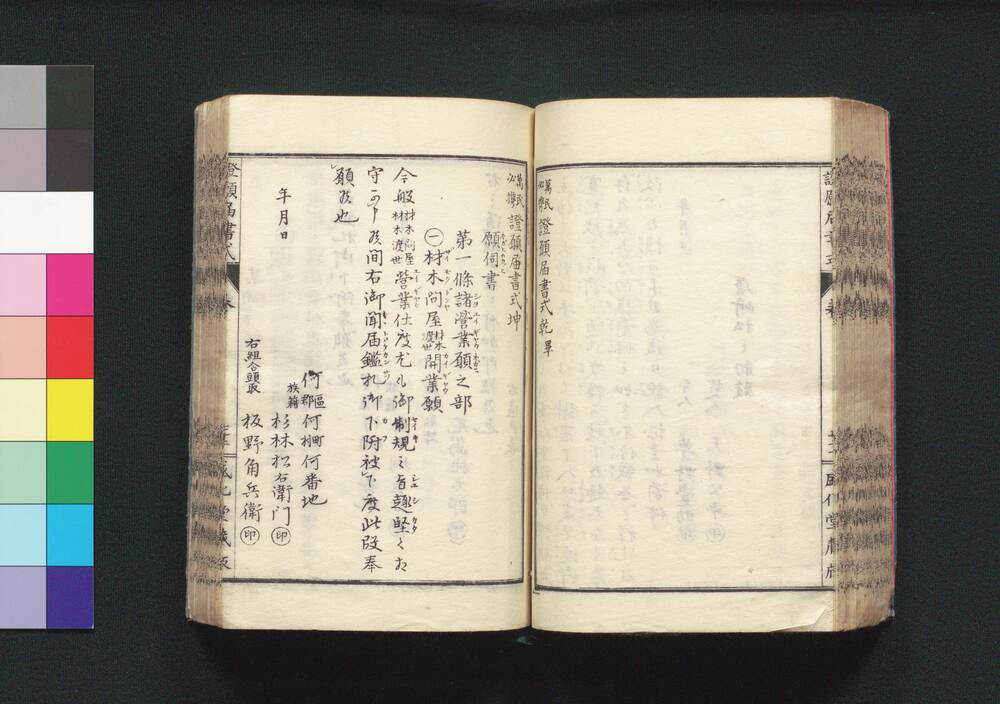 萬民必携 證願届書式乾畢
萬民必携 證願届書式坤
願伺書
第一條諸營業願之部
㊀材木問屋材木渡世開業願
今般材木問屋材木渡世營業仕度尤も御制規之旨趣堅く相
守可申候間右御聞届鑑札御下附被下度此段奉
願候也
年月日
何區郡何町村何番地
族籍
杉林松右衛門㊞
右組合頭取
板野角兵衛㊞
證願届書式